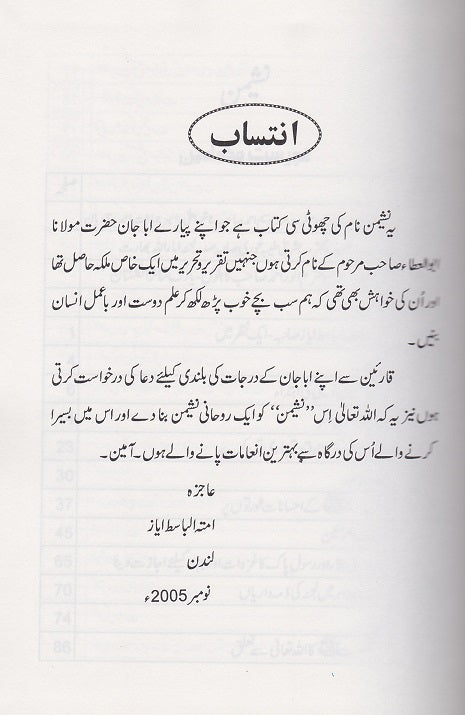 انتساب
یہ نشیمن نام کی چھوٹی سی کتاب ہے جو اپنے پیارے ابا جان حضرت مولانا
ابوالعطاء صاحب مرحوم کے نام کرتی ہوں جنہیں تقریر و تحریر میں ایک خاص ملکہ حاصل تھا
اور اُن کی خواہش بھی تھی کہ ہم سب بچے خوب پڑھ لکھ کر علم دوست اور باعمل انسان
بنیں۔
قارئین سے اپنے ابا جان کے درجات کی بلندی کیلئے دعا کی درخواست کرتی
ہوں نیز یہ کہ اللہ تعالیٰ اِس ”نشیمن“ کو ایک روحانی نشیمن بنا دے اور اس میں بسیرا
کرنے والے اُس کی درگاہ سے بہترین انعامات پانے والے ہوں۔ آمین۔
عاجزہ
امتہ الباسط ایاز
لندن
نومبر 2005ء